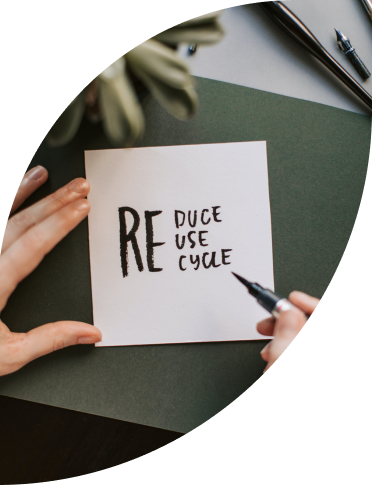 RE DUCE
USE
CYCLE